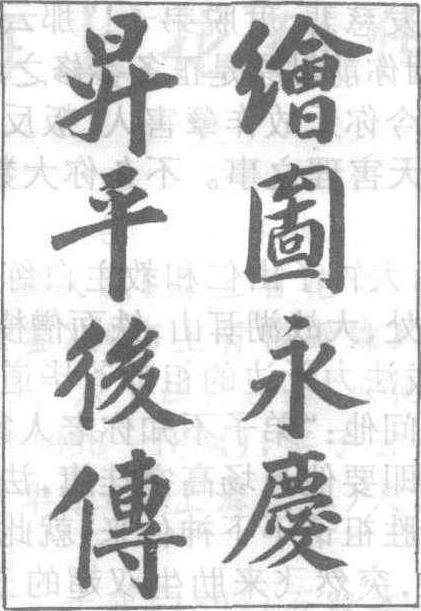 繪圖永慶
昇平後傳